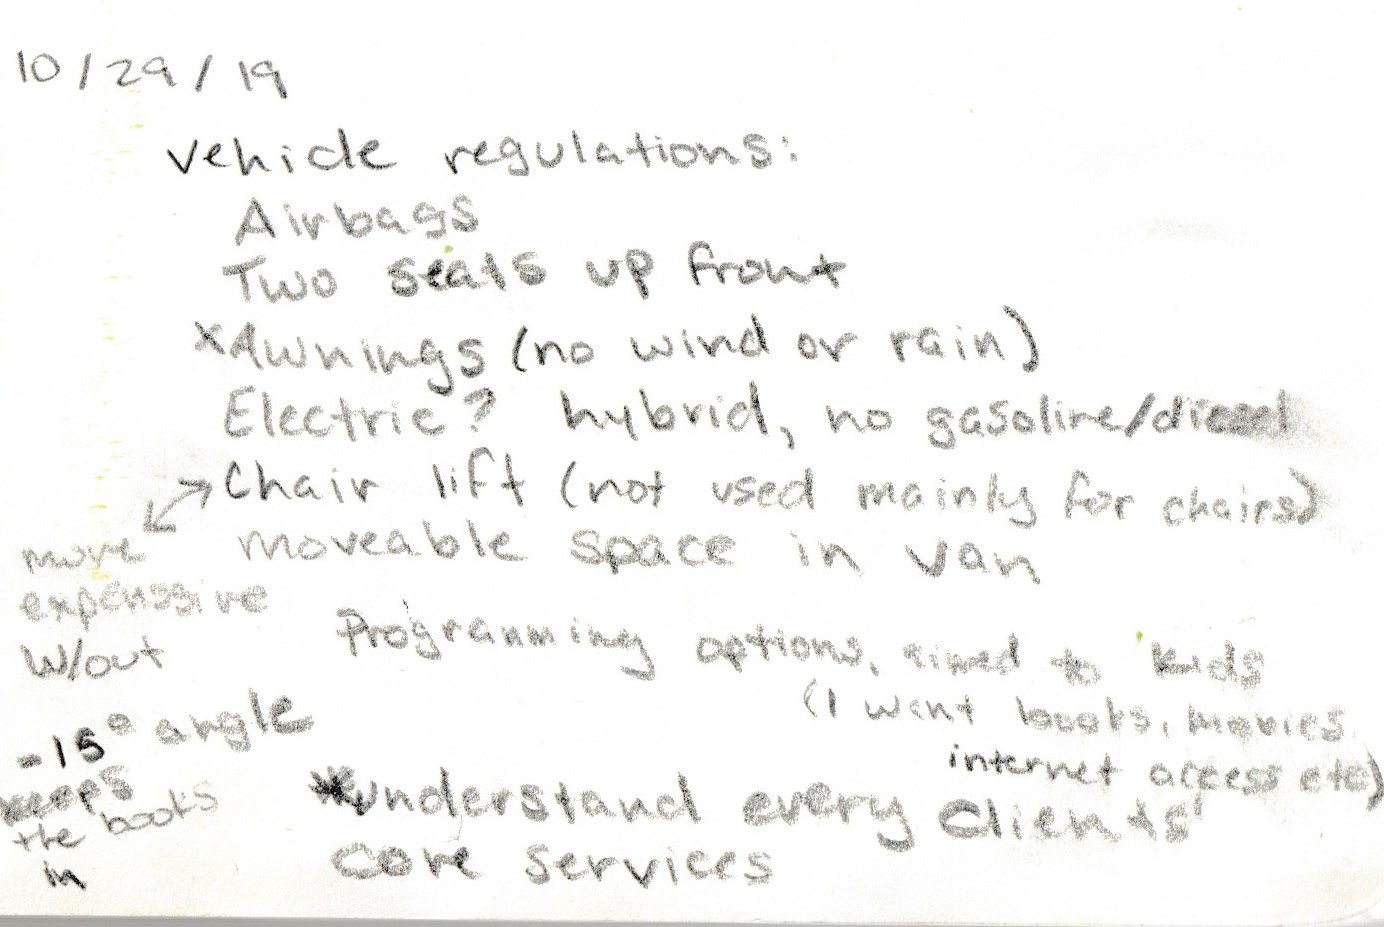 10/29/19
vehicle regulations:
Airbags
Two seats up front
xAwnings (no wind or rain)
Electric? hybrid, no gasoline/diesel
Chair lift (not used mainly for chairs)
moveable space in van
more
expenssive
w/out
Programming options, aimed to kids
(I want books, movies,
internet access etc)
-15° angle
keeps
the books
in
*understand every clients'
core services